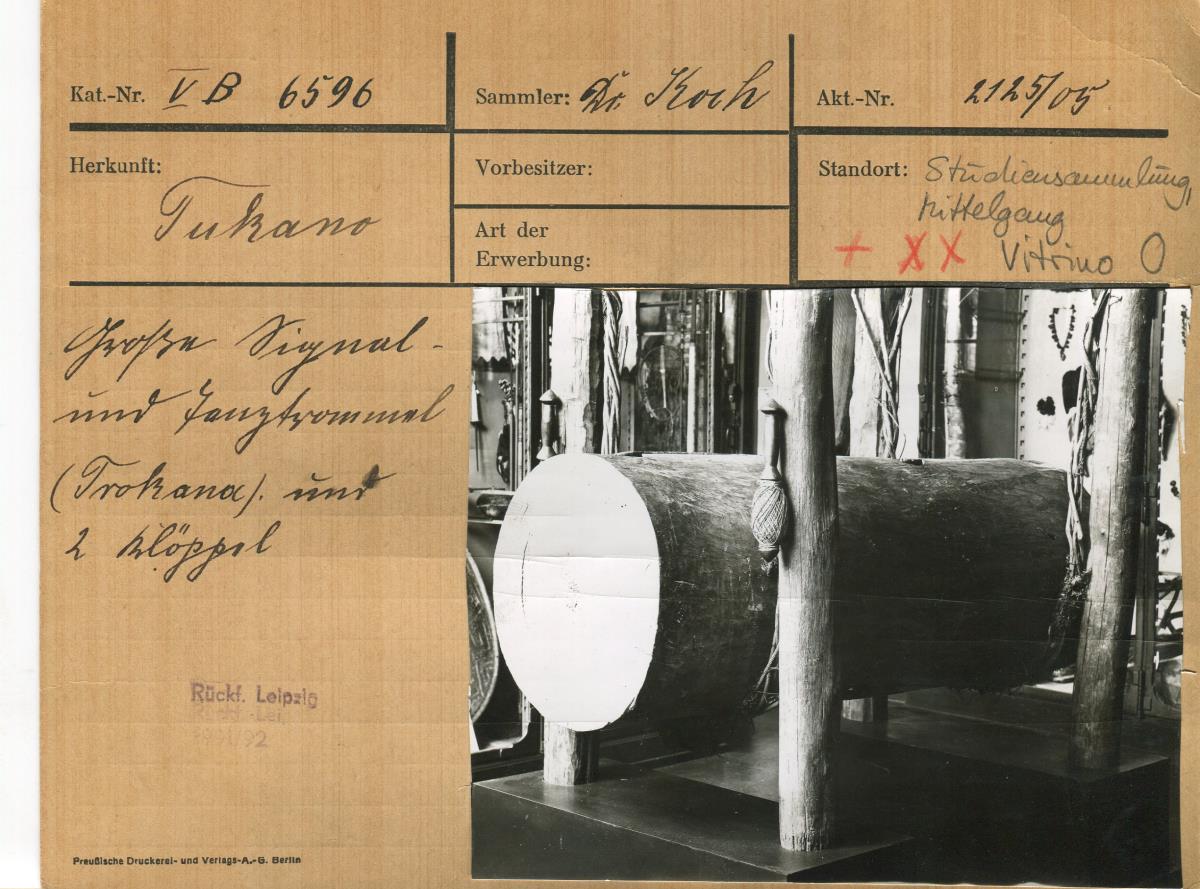 Kat.-Nr. V B 6596
Sammler: Dr. Koch
Akt.-Nr. 2125/05
Herkunft:
Tukano
Vorbesitzer:
Art der
Erwerbung:
Standort: Studiensammlung,
Mittelgang
+ X X Vitrine O
Große Signal-
und Tanztrommel
(Trokana). und
2 Klöppel
Rückf. Leipzig
Rückf. Lei
92
Preußische Druckerei- und Verlags-A.-G. Berlin